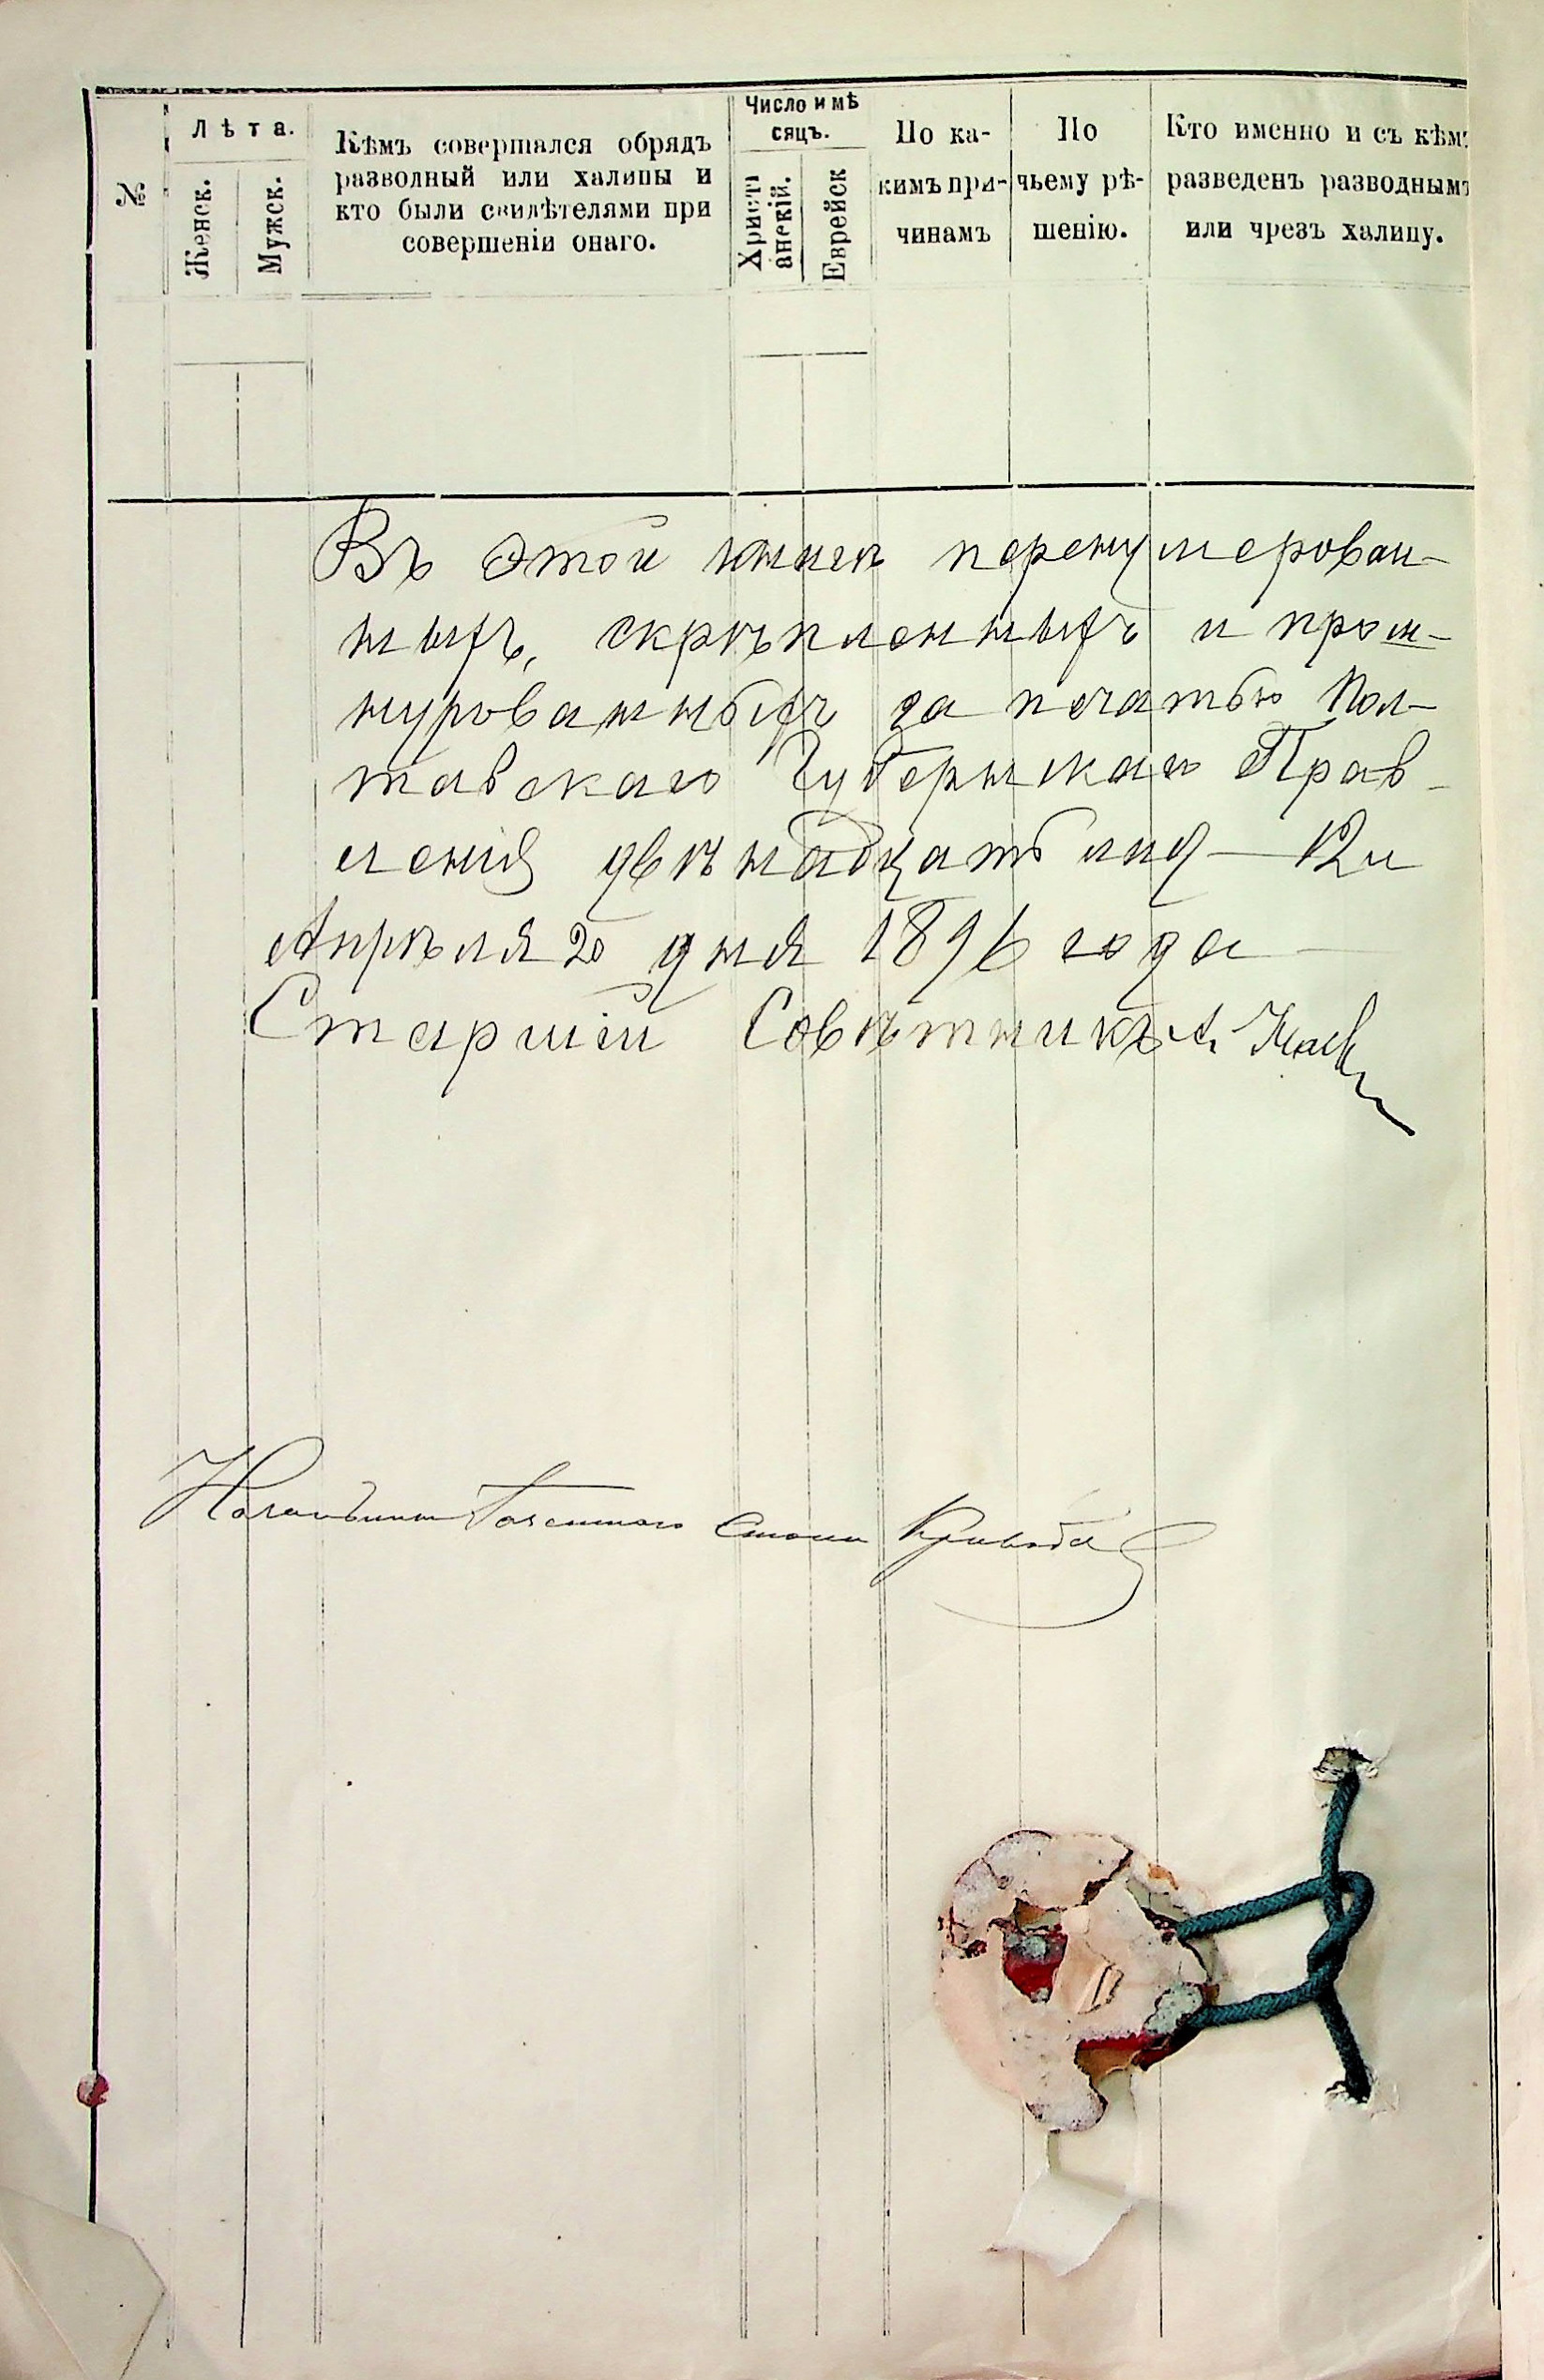 №
Лѣта.
Женск.
Мужск.
Кѣмъ совершался обрядъ
разводный или халицы и
кто были свидѣтелями при
совершеніи онаго.
Число и мѣ
сяцъ.
Христі
анскій.
Еврейск
По ка-
кимъ при-
чинамъ
По
чьему рѣ-
шенію.
Кто именно и съ кѣмъ
разведенъ разводнымъ
или чрезъ халицу.
Въ этой книгѣ перенумерован-
ныхъ, скрѣпленныхъ и прош-
нурованныхъ за печатью Пол-
тавскаго Губернскаго Прав-
ленія двѣнадцать лис — 12 л
Апрѣля 20 дня 1896 года
Старшій Совѣтникъ А.